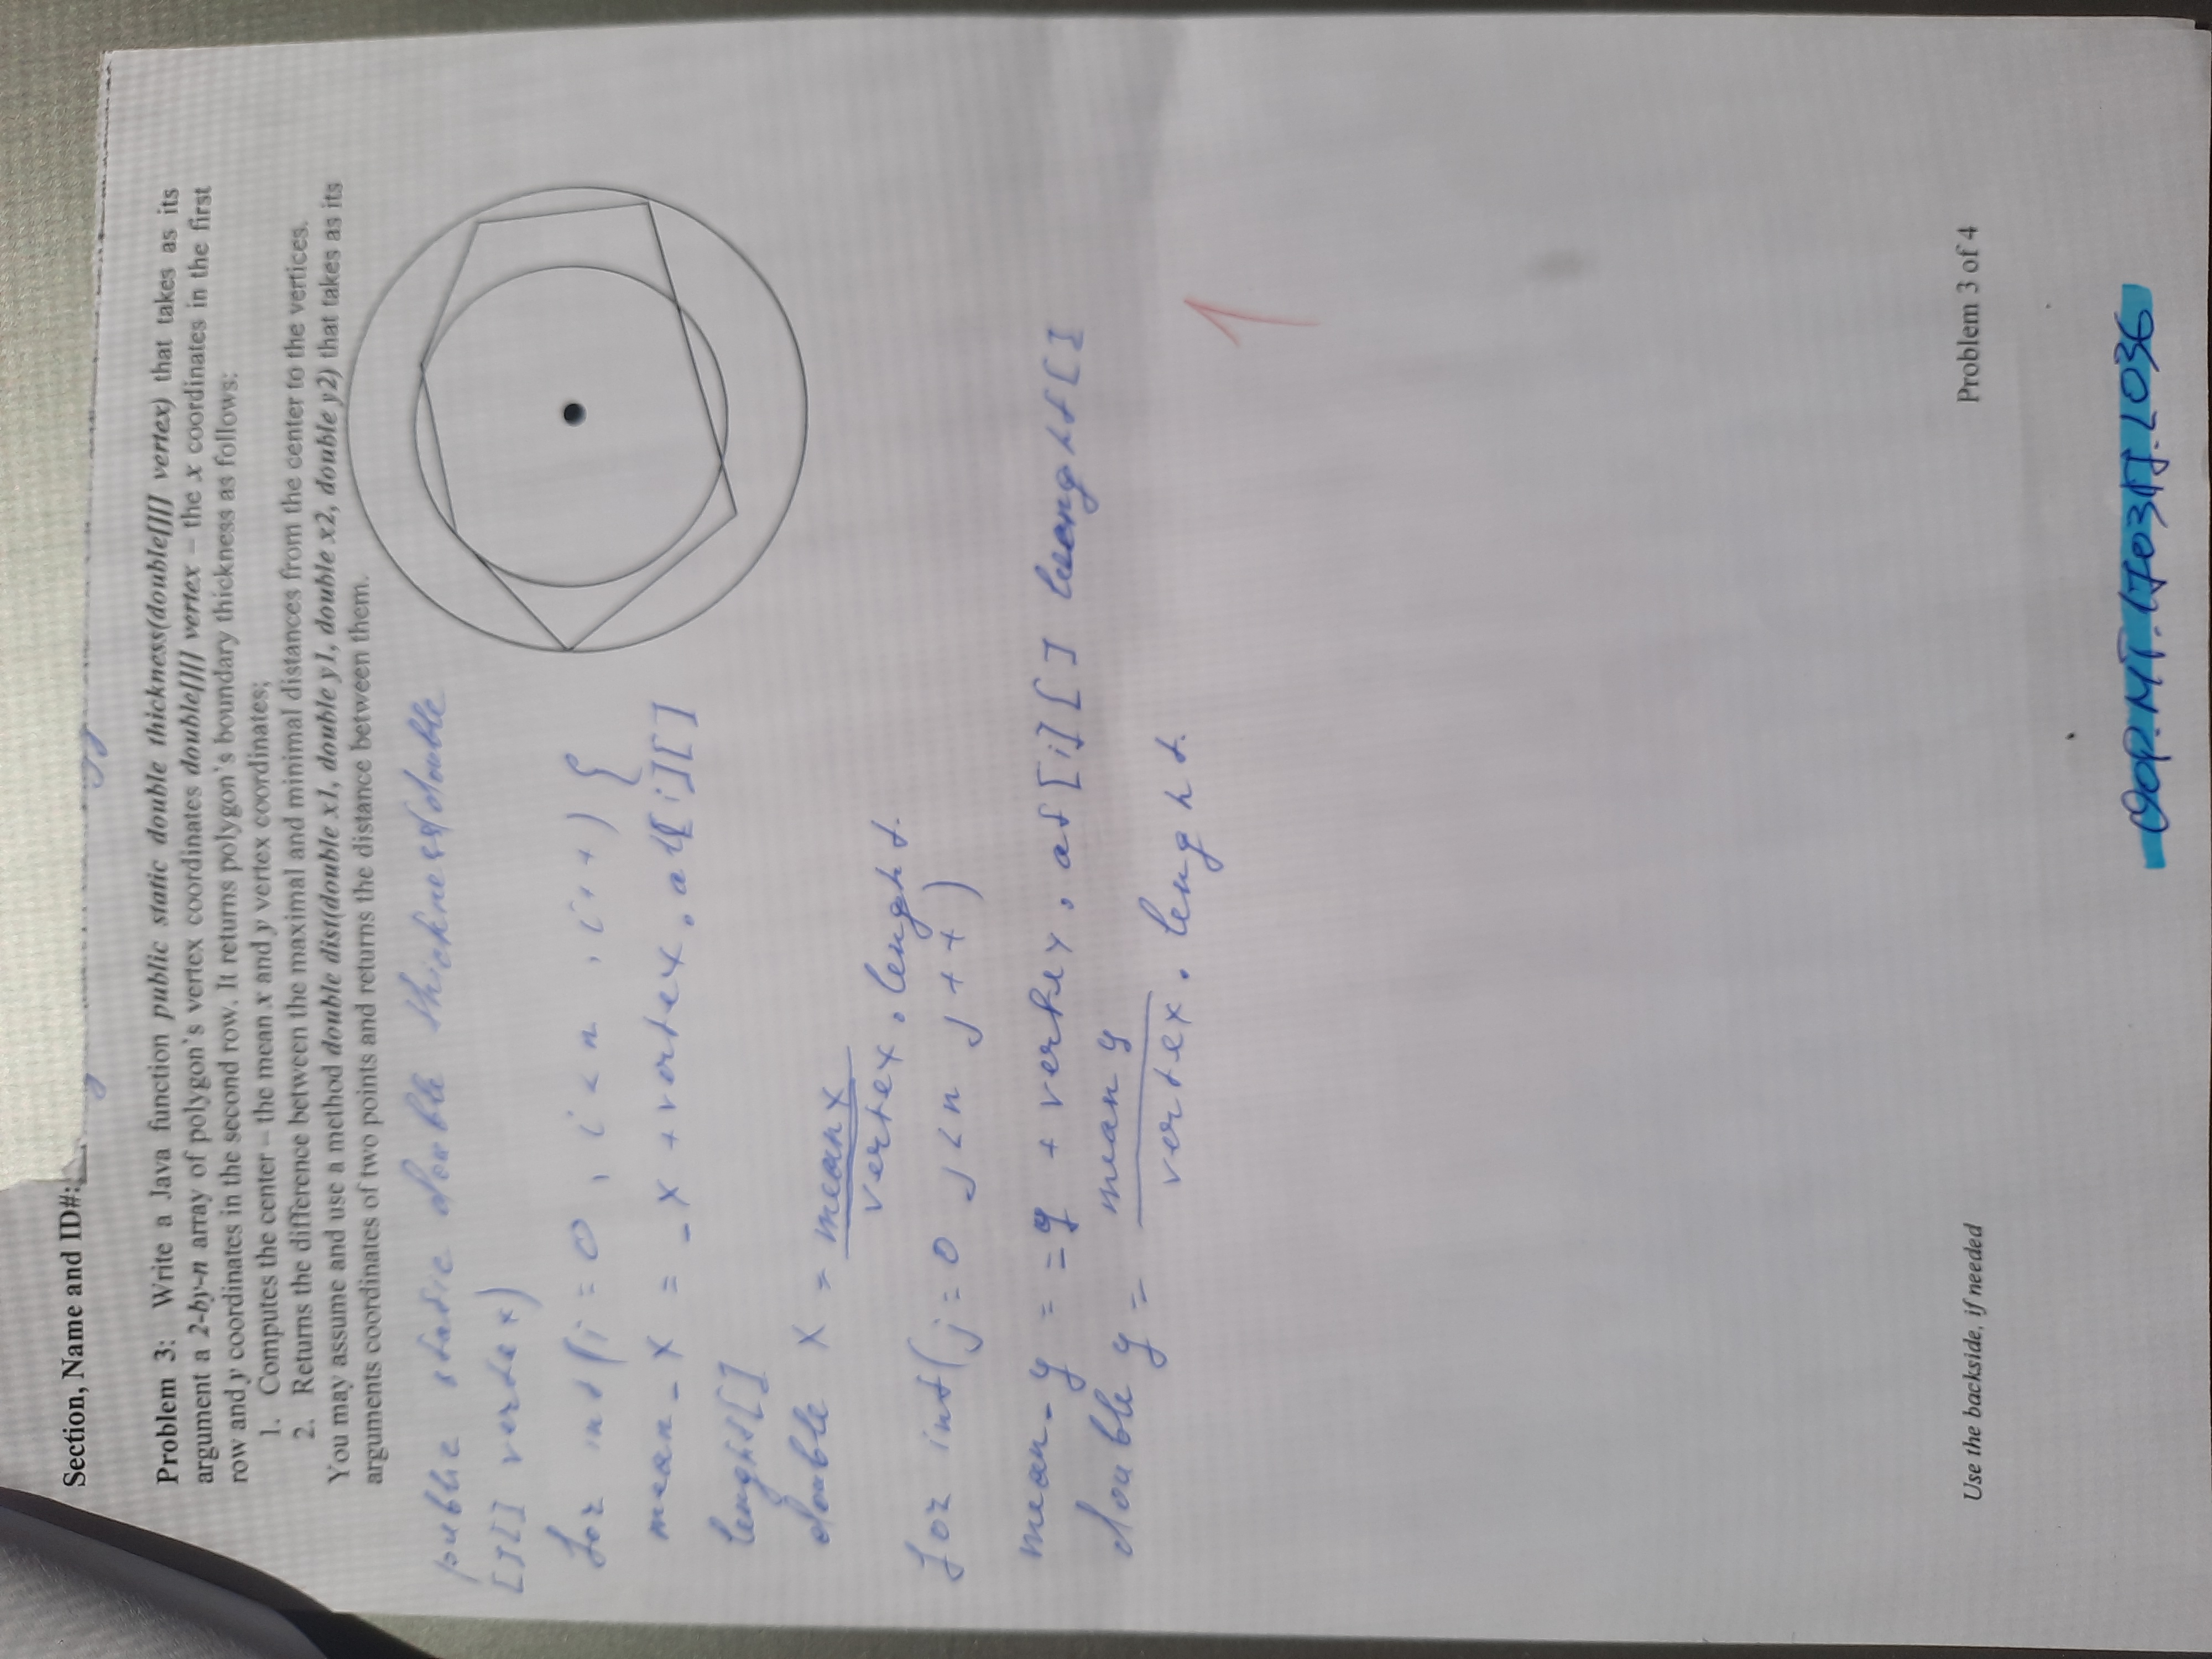 Section, Name and ID#:
Problem 3: Write a Java function public static double thickness(double[][] vertex) that takes as its
argument a 2-by-n array of polygon's vertex coordinates double[][] vertex – the x coordinates in the first
row and y coordinates in the second row. It returns polygon's boundary thickness as follows:
1. Computes the center – the mean x and y vertex coordinates;
2. Returns the difference between the maximal and minimal distances from the center to the vertices.
You may assume and use a method double dist(double x1, double y1, double x2, double y2) that takes as its
arguments coordinates of two points and returns the distance between them.
public static double thickness(double
[][] vertex)
for int(i = 0 , i < n , i++) {
mean_x = _x + vertex. at[i][]
lenght[]
double x = mean x
vertex . lenght.
for int(j = 0 j < n j++)
mean_y = =y + vertex. at[i][] lenght[]
double y = mean y
vertex . lenght.
1
Use the backside, if needed
Problem 3 of 4